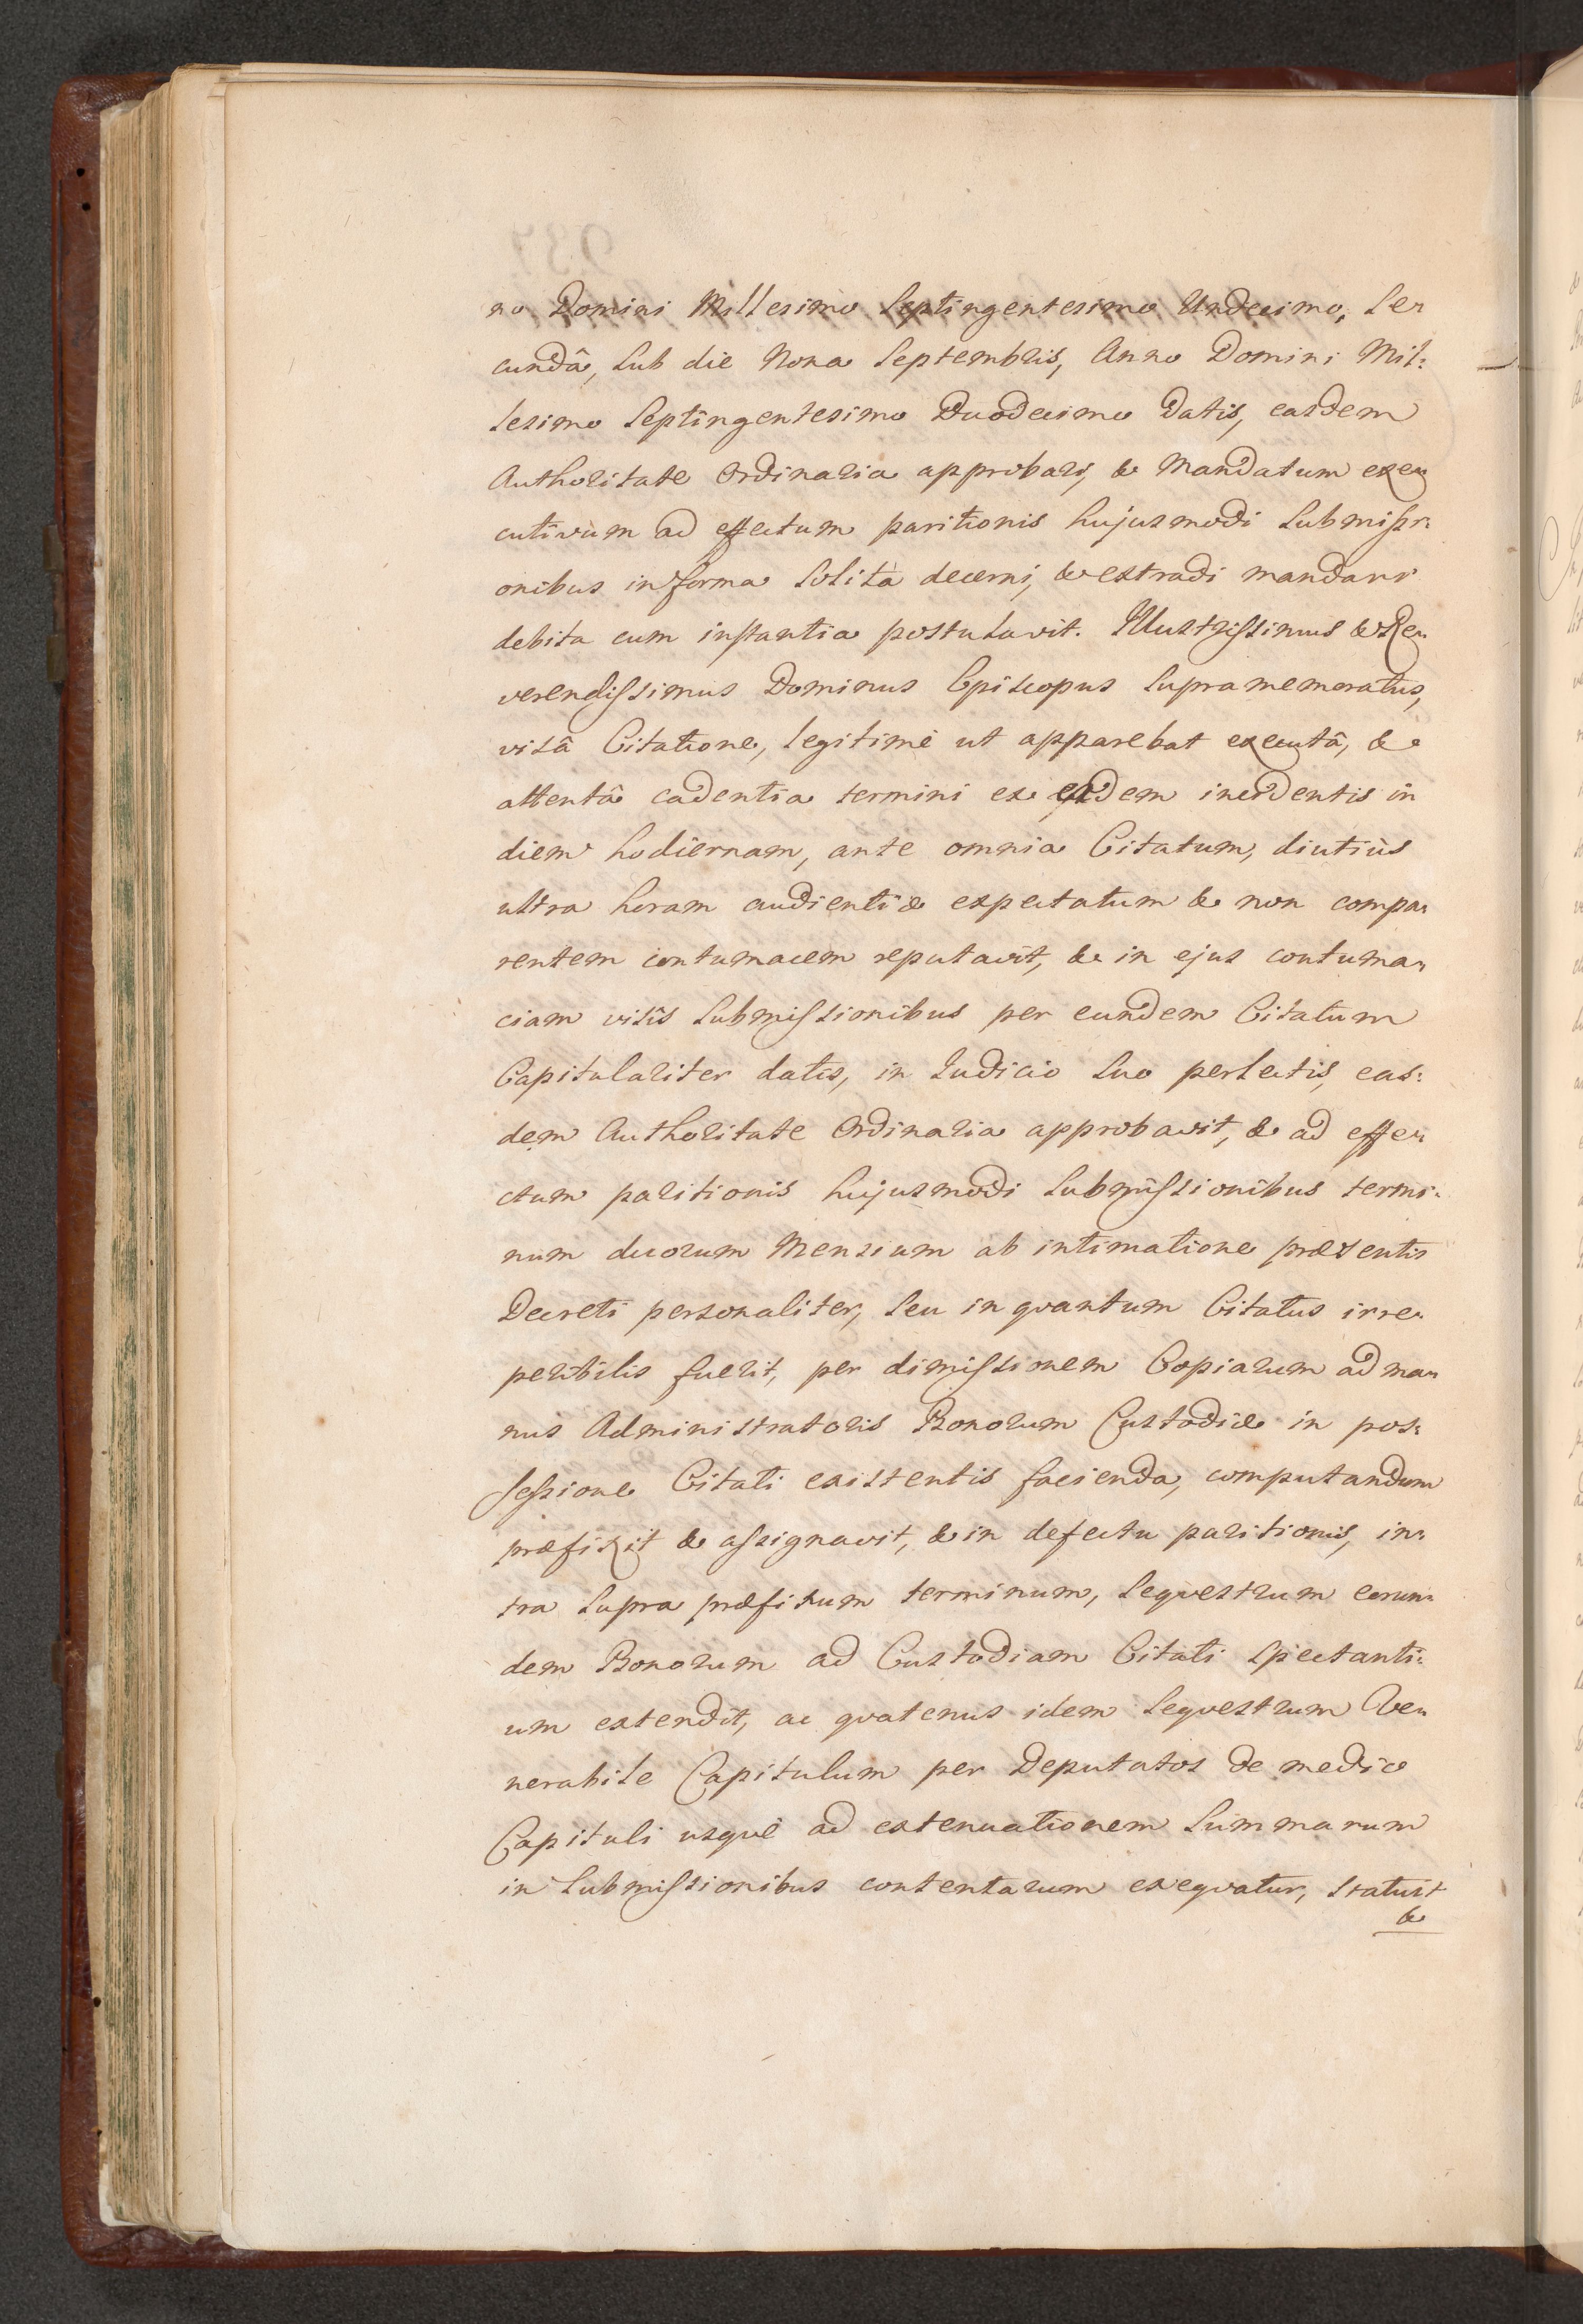 no Domini Millesimo Septingentesimo Undecimo, Se„
cundâ, Sub die Nona Septembris, Anno Domini Mil:
lesimo Septingentesimo Duodecimo Datis, easdem
Authoritate Ordinaria approbari, & Mandatum exe„
cutivum ad effectum paritionis hujusmodi Submissi„
onibus in forma Solita decerni, & extradi mandari
debita cum instantia postulavit. Illustrissimus & Re„
verendissimus Dominus Episcopus Supramemoratus,
visâ Citatione, legitimè ut apparebat executâ, &
attentâ cadentia termini ex eadem incidentis in
diem hodiernam, ante omnia Citatum, diutiùs
ultra horam audientiæ expectatum & non compa„
rentem contumacem reputavit, & in ejus contuma„
ciam visis Submissionibus per eundem Citatum
Capitulariter datis, in Judicio Suo perlectis, eas:
dem Authoritate Ordinaria approbavit, & ad effe„
ctum paritionis hujusmodi Submissionibus termi„
num duorum Mensium ab intimatione præsentis
Decreti personaliter, Seu in qvantum Citatus irre„
peribilis fuerit, per dimissionem Copiarum ad ma„
nus Administratoris Bonorum Custodiæ in pos:
sessione Citati existentis facienda, computandum
præfixit & assignavit, & in defectu paritionis, in„
tra Supra præfixum terminum, Seqvestrum eorun„
dem Bonorum ad Custodiam Citati Spectanti:
um extendit, ac qvatenus idem Seqvestrum Ve„
nerabile Capitulum per Deputatos de medio
Capituli usqvè ad extenuationem Summarum
in Submissionibus contentarum exeqvatur, Statuit
&